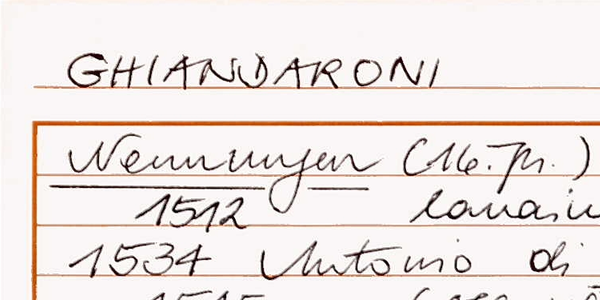 GHIANDARONI
Nennungen (16. Jh.)
1512
1534 Antonio di